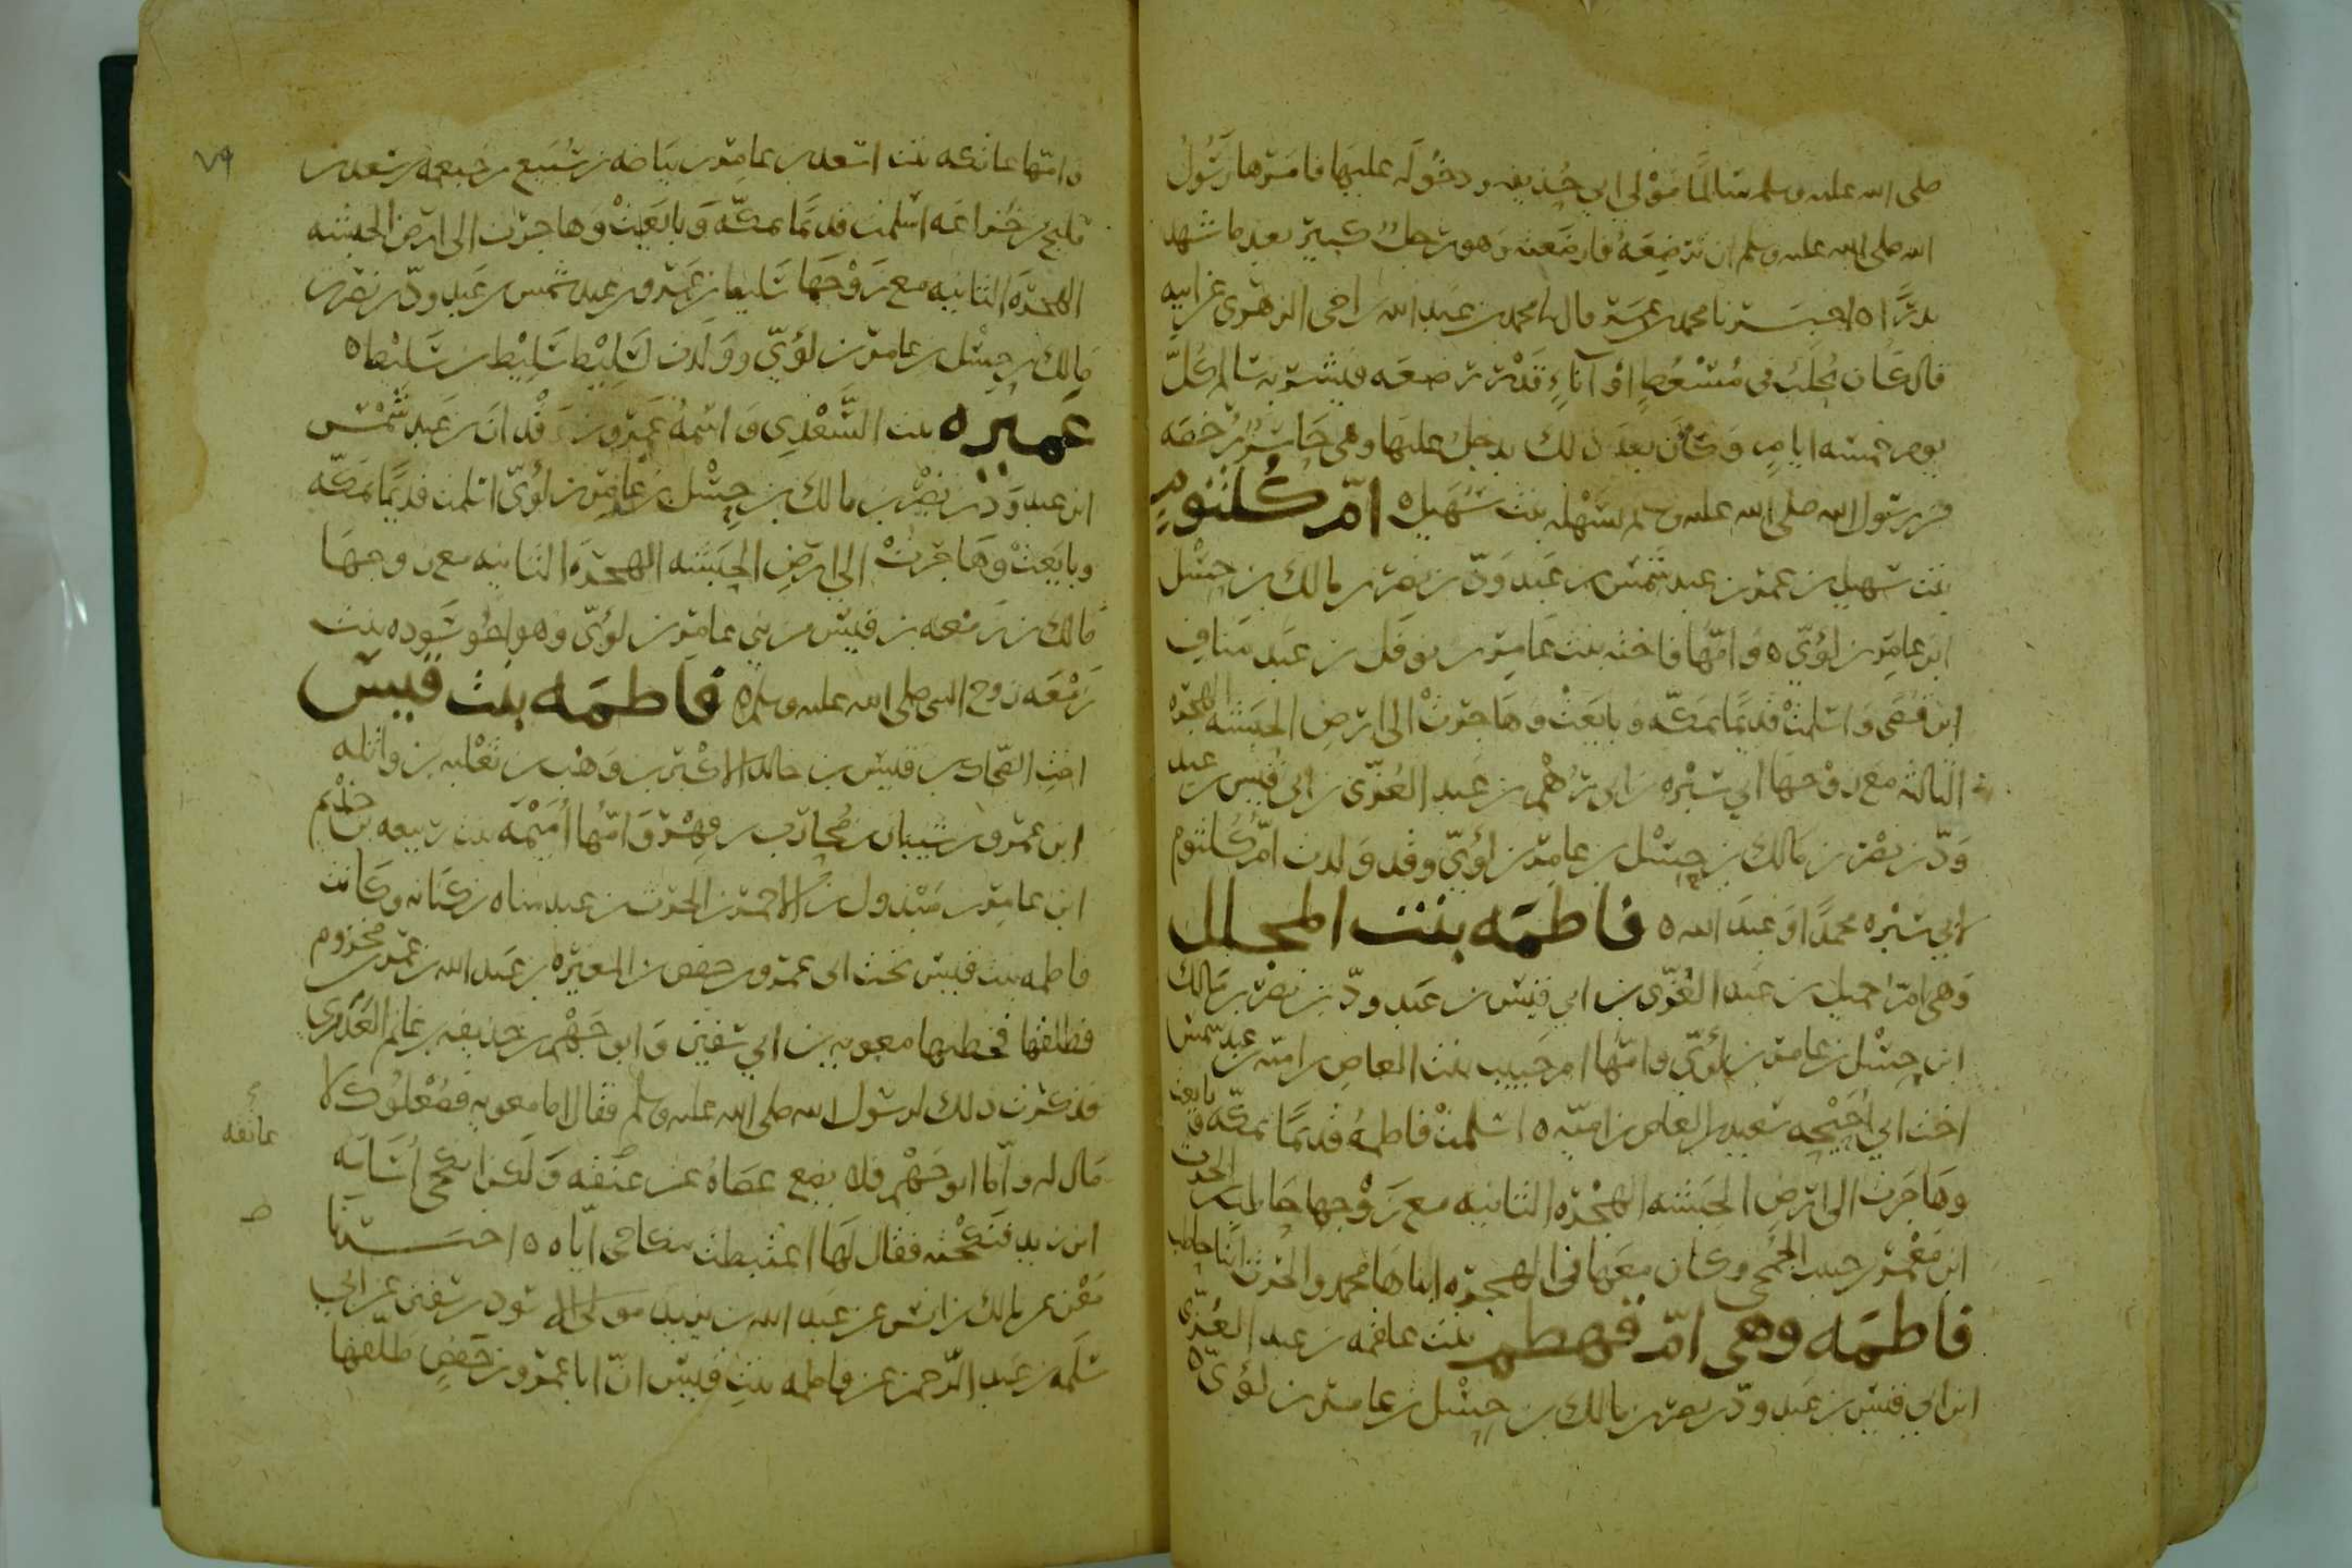 صلى الله عليه وسلم سالما مولى ابي حذيفه ودخوله عليها فامرها رسول
الله صلى الله عليه وسلم ان ترضعه فارضعته وهو رجل كبير بعد ما شهد
بدرا ه اخبرنا محمد بن عمر قال نا محمد بن عبد الله بن اخي الزهري عن ابيه
قال كان يحلب في مسعط او اناء قدر رضعه فيشربه سالم كل
يوم خمسه ايام وكان بعد ذلك يدخل عليها وهي حاسر رخصه
من رسول الله صلى الله عليه وسلم لسهله بنت سهيل ه ام كلثوم
بنت سهيل بن عمرو بن عبد شمس بن عبد ود بن نصر بن مالك بن حسل
ابن عامر بن لؤي ه وامها فاخته بنت عامر بن نوفل بن عبد مناف
ابن قصي واسلمت قديما بمكه وبايعت وهاجرت الى ارض الحبشه الهجره
الثانيه مع زوجها ابي سبره بن ابي رهم بن عبد العزى بن ابي قيس بن عبد
ود بن نصر بن مالك بن حسل بن عامر بن لؤي وقد ولدت ام كلثوم
لابي سبره محمدا وعبد الله ه فاطمه بنت المجلل
وهي ام جميل بن عبد العزى بن ابي قيس بن عبد ود بن نصر بن مالك
ابن حسل بن عامر بن لؤي وامها ام حبيب بنت العاص بن اميه بن عبد شمس
اخت ابي احيحه سعيد بن العاص بن اميه ه اسلمت فاطمه قديما بمكه وبايعت
وهاجرت الى ارض الحبشه الهجره الثانيه مع زوجها حاطب بن الحرث
ابن معمر بن حبيب الجمحي وكان معها في الهجره ابناها محمد والحرث ابنا حاطب
فاطمه وهي ام قهطم بنت علقمه بن عبد العزى
ابن ابي قيس بن عبد ود بن نصر بن مالك بن حسل بن عامر بن لؤي ه
٧٩
وامها عاتكه بنت اسعد بن عامر بن بياضه بن سبيع بن جعثمه بن سعد بن
مليح بن خزاعه اسلمت قديما بمكه وبايعت وهاجرت الى ارض الحبشه
الهجره الثانيه مع زوجها سليط بن عمرو بن عبد شمس بن عبد ود بن نصر بن
مالك بن حسل بن عامر بن لؤي وولدت لسليط سليط بن سليط ه
عميره بنت السعدي واسمه عمرو بن وقدان بن عبد شمس
ابن عبد ود بن نصر بن مالك بن حسل بن عامر بن لؤي اسلمت قديما بمكه
وبايعت وهاجرت الى ارض الحبشه الهجره الثانيه مع زوجها
مالك بن زمعه بن قيس من بني عامر بن لؤي وهو اخو سوده بنت
زمعه زوج النبي صلى الله عليه وسلم ه فاطمه بنت قيس
اخت الضحاك بن قيس بن خالد الاكبر بن وهب بن ثعلبه بن واثله
ابن عمرو بن شيبان بن محارب بن فهر وامها اميمه بنت ربيعه بن حذيم
ابن عامر بن مبذول بن الاحمر بن الحرث بن عبد مناه بن كنانه وكانت
فاطمه بنت قيس تحت ابي عمرو بن حفص بن المغيره بن عبد الله بن عمر بن مخزوم
فطلقها فخطبها معويه بن ابي سفين وابو جهم بن حذيفه بن غانم العدوي
فذكرت ذلك لرسول الله صلى الله عليه وسلم فقال اما معويه فصعلوك لا
مال له واما ابو جهم فلا يضع عصاه عن عنقه ولكن انكحي اسامه
عاتقه
ابن زيد فنكحته فقال لها اغتبطت بنكاحي اياه ه اخبرنا
معن عن مالك بن انس عن عبد الله بن يزيد مولى الاسود بن سفين عن ابي
سلمه بن عبد الرحمن عن فاطمه بنت قيس ان ابا عمرو بن حفص طلقها